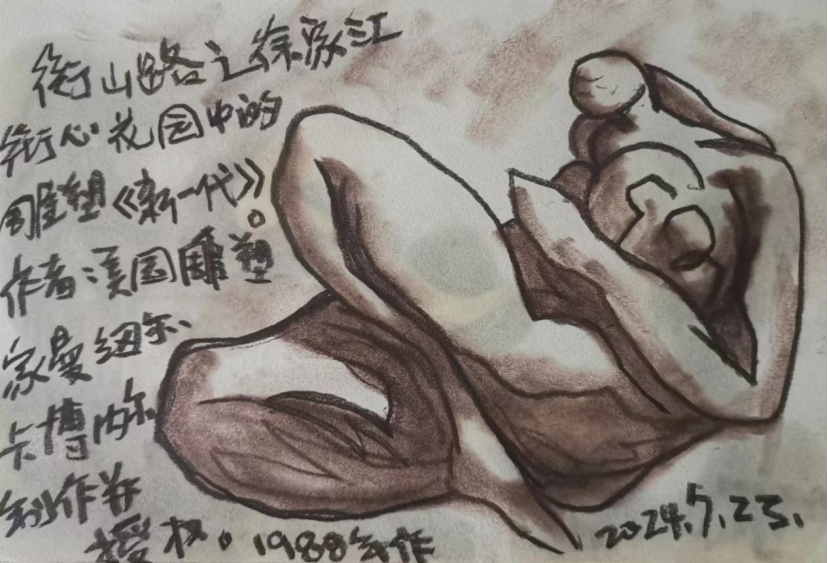 衡山路之徐家汇
街心花园中的
雕塑《新一代》。
作者:美国雕塑
家曼纽尔
卡博内尔
创作并
授权。1988年作
2024.5.23.